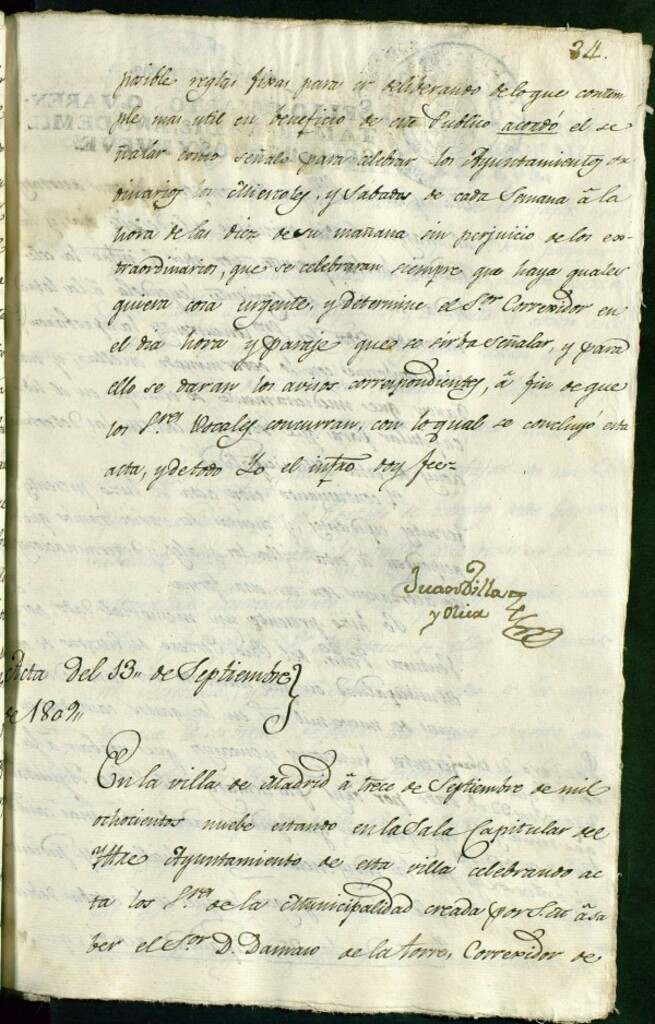 34.
posible reglas fixas para ir deliberando de lo que contem
ple mas util en beneficio de este Publico acordó el se
ñalar como señalo para celebrar los Ayuntamientos or
dinarios los Miercoles, y Sabados de cada Semana â la
hora de las diez de su mañana sin perjuicio de los ex-
traordinarios, que se celebraran siempre que haya quales
quiera cosa urgente, y determine el S.or Corregidor en
el dia hora y paraje que se sirba señalar, y para
ello se daran los avisos correspondientes, â fin de que
los S.res Vocales concurran, con lo qual se concluyó esta
acta, y de todo Yo el infro doy fee=
Juan Villa
y Olier
Acta del 13,, de Septiembre
de 1809,,
En la villa de Madrid â trece de Septiembre de mil
ochocientos nuebe estando en la Sala Capitular del
Ylltre Ayuntamiento de esta villa celebrando ac
ta los S.res de la Municipalidad creada por S.M. â sa
ber el S.or D. Damaso de la Torre, Corregidor de